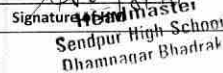 Signature Headmaster
Sendpur High School
Dhamnagar Bhadrak